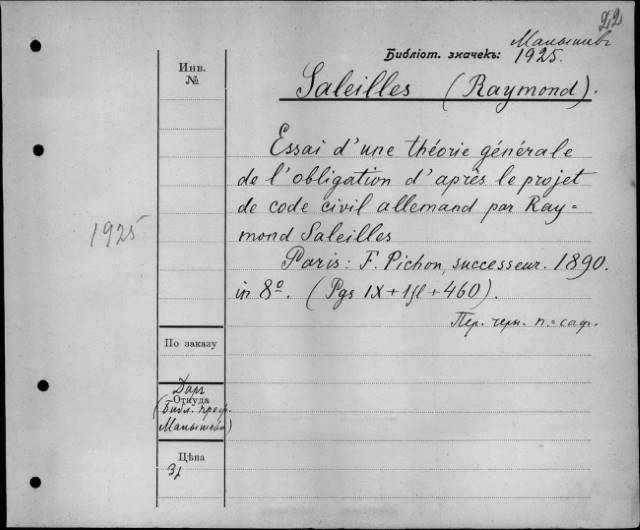 22
Малышевъ
Библіот. значекъ: 1925.
Инв.
№
Saleilles (Raymond).
Essai d'une théorie générale
de l'obligation d'après le projet
de code civil allemand par Ray=
mond Saleilles
1925
Paris: F. Pichon, successeur. 1890.
in 8º. (Pgs IX+1fl+460).
Пер. черн. п.=саф.
По заказу
Даръ
Откуда
(Библ. проф.
Малышева)
Цѣна